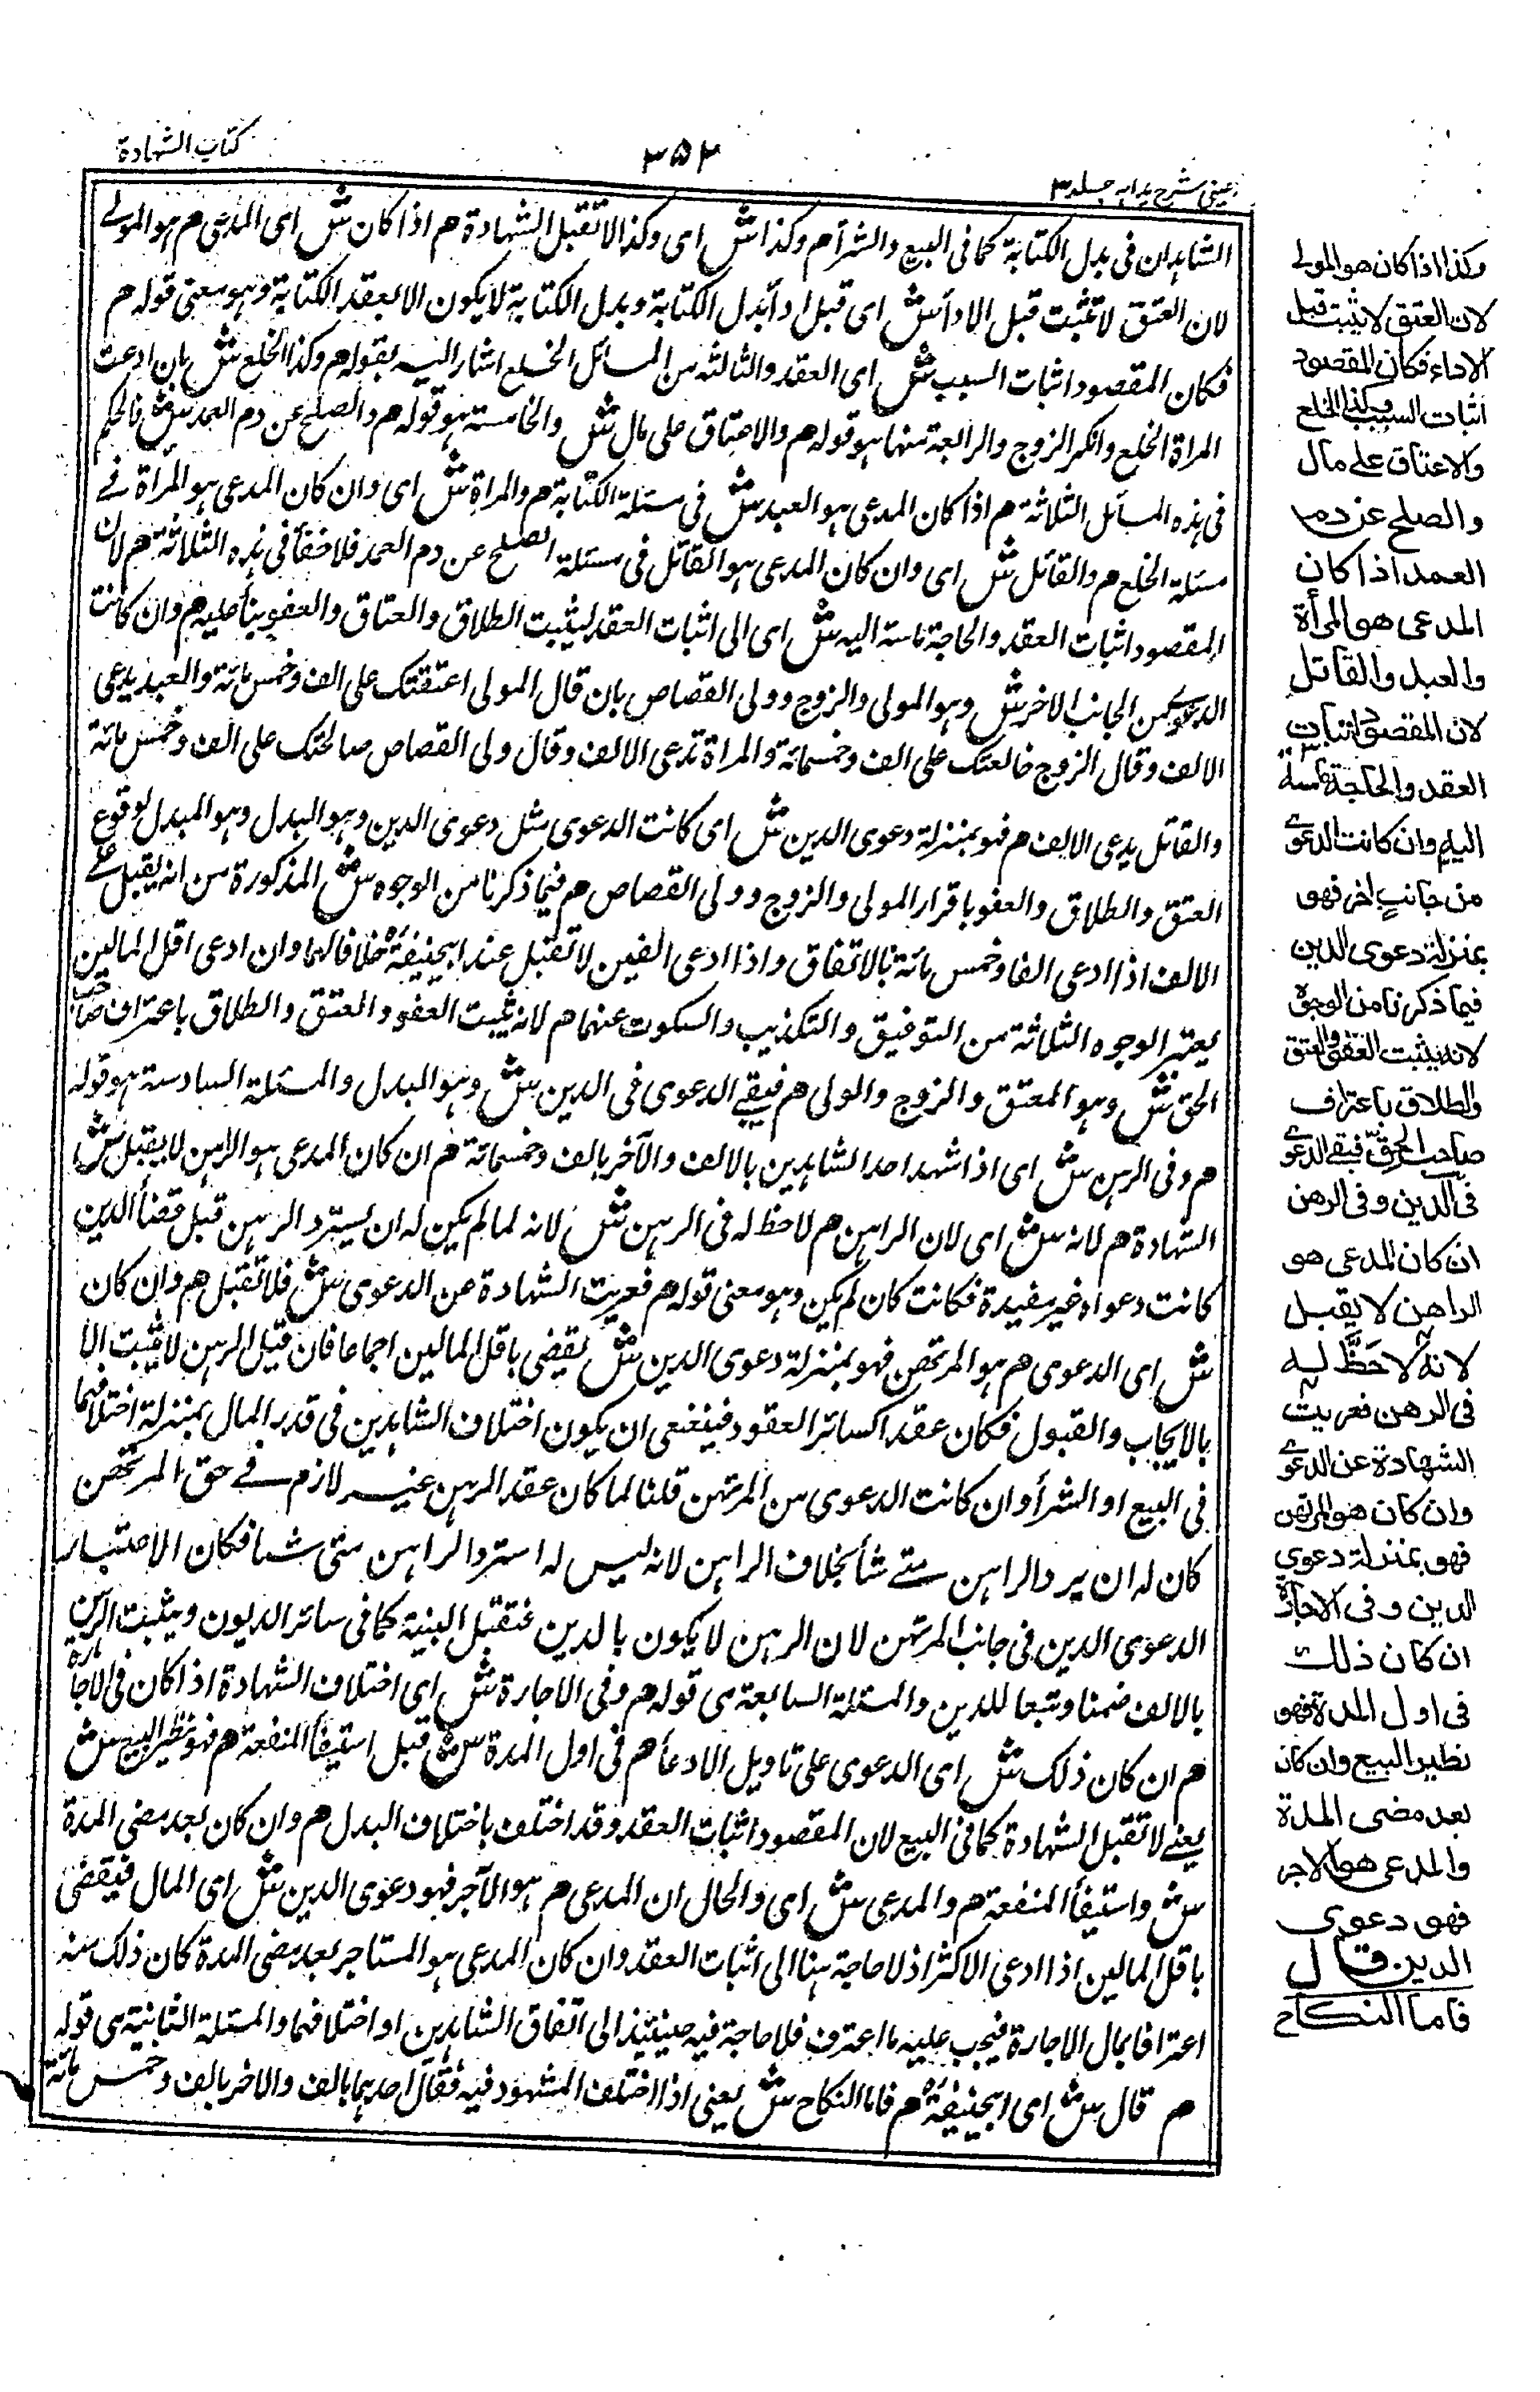 كتاب الشهادة
٣٥٢
عينى شرح هدايه جلد ٣
الشاهدان فى بدل الكتابة كما فى البيع والشرأ م وكذا ش اى وكذا لا تقبل الشهادة م اذا كان ش اى المدعى م هو المولى
لان العتق لا تثبت قبل الادأ ش اى قبل ادأ بدل الكتابة وبدل الكتابة لا يكون الا بعقد الكتابة وهو معنى قوله م
فكان المقصود اثبات السبب ش اى العقد والثالثه من المسائل الخلع اشار اليه بقوله م وكذا الخلع ش بان ادعت
المراة الخلع وانكر الزوج والرابعة منها هو قوله م والاعتاق على مال ش والخامسة هو قوله م والصلح عن دم العمد ش فالحكم
فى هذه المسأئل الثلاثة م اذا كان المدعى هو العبد ش فى مسئلة الكتابة م والمراة ش اى وان كان المدعى هو المرأة فے
مسئلة الخلع م والقاتل ش اى وان كان المدعى هو القاتل فى مسئلة الصلح عن دم العمد فلا خفأ فى هذه الثلاثة م لان
المقصود اثبات العقد والحاجة ماسة اليه ش اى الى اثبات العقد ليثبت الطلاق والعتاق والعفو بنأ عليه م وان كانت
الدعوى من الجانب الاخر ش وهو المولى والزوج وولى القصاص بان قال المولى اعتقتك على الف وخمس مائة والعبد يدعى
الالف وقال الزوج خالعتك على الف وخمسمائة والمراة تدعى الالف وقال ولى القصاص صالحتك على الف وخمس مائة
والقاتل يدعى الالف م فهو بمنزلة دعوى الدين ش اى كانت الدعوى مثل دعوى الدين وهو البدل وهو المبدل لوقوع
العتق والطلاق والعفو باقرار المولى والزوج وولى القصاص م فيما ذكرنا من الوجوه ش المذكورة من انه يقبل علے
الالف اذا ادعى الفا وخمس مائة بالاتفاق واذا ادعى الفين لا تقبل عند ابيحنيفة رح خلافا لهما وان ادعى اقل المالين
يعتبر الوجوه الثلاثة من التوفيق والتكذيب والسكوت عنهما م لانه ثبت العفو والعتق والطلاق باعتراف صاحب
الحق ش وهو المعتق والزوج والمولى م فبقے الدعوى فى الدين ش وهو المبدل والمسئلة السادسة هو قوله
م وفى الرهن ش اى اذا شهد احد الشاهدين بالالف والآخر بالف وخمسمائة م ان كان المدعى هو الراهن لا يقبل ش
الشهادة م لانه ش اى لان الراهن م لا حظ له فى الرهن ش لانه لما لم يكن له ان يسترد الرهن قبل قضأ الدين
كانت دعواه غير مفيدة فكانت كان لم يكن وهو معنى قوله م فعريت الشهادة عن الدعوى ش فلا تقبل م وان كان
ش اى الدعوى م هو المرتهن فهو بمنزلة دعوى الدين ش يقضى باقل المالين اجماعا فان قيل الرهن لا يثبت الا
بالايجاب والقبول فكان عقدا كسائر العقود فينبغى ان يكون اختلاف الشاهدين فى قدر المال بمنزلة اختلافهما
فى البيع او الشرأ وان كانت الدعوى من المرتهن قلنا لما كان عقد الرهن غير لازم فے حق المرتهن
كان له ان يرد الراهن متے شأ بخلاف الراهن لانه ليس له استرد الراهن متى شا فكان الاعتبار
الدعوى الدين فى جانب المرتهن لان الرهن لا يكون بالدين فتقبل البينة كما فى سائر الديون ويثبت الرهن
بالالف ضمنا وتبعا للدين والمسئلة السابعة هى قوله م وفى الاجارة ش اى اختلاف الشهادة اذا كان فى الاجارة
م ان كان ذلك ش اى الدعوى على تاويل الادعأ م فى اول المدة ش قبل استيفأ المنفعة م فهو نظير البيع ش
يعنے لا تقبل الشهادة كما فى البيع لان المقصود اثبات العقد وقد اختلف باختلاف البدل م وان كان بعد مضى المدة
ش واستيفأ المنفعة م والمدعى ش اى والحال ان المدعى م هو الآجر فهو دعوى الدين ش اى المال فيقضى
باقل المالين اذا ادعى الاكثر اذ لا حاجة هنا الى اثبات العقد وان كان المدعى هو المستاجر بعد مضى المدة كان ذلك منه
اعترافا بمال الاجارة فيجب عليه ما اعترف فلا حاجة فيه حينئذ الى اتفاق الشاهدين او اختلافهما والمسئلة الثانية هى قوله
م قال ش اى ابيحنيفة رح م فاما النكاح ش يعنى اذا اختلف المشهود فيه فقال احدهما بالف والاخر بالف وخمس مائة
وكذا اذا كان هو المولى
لان العتق لا يثبت قبل
الاداء فكان المقصود
اثبات السبب وكذا الخلع
والاعتاق على مال
والصلح عن دم
العمد اذا كان
المدعى هو المرأة
والعبد والقاتل
لان المقصود اثبات
العقد والحاجة ماسة
اليه وان كانت الدعوے
من جانب اخر فهو
بمنزلة دعوى الدين
فيما ذكرنا من الوجوه
لانه يثبت العفو والعتق
والطلاق باعتراف
صاحب الحق فبقے الدعوے
فى الدين وفى الرهن
ان كان المدعى هو
الراهن لا يقبل
لانه لا حَظَّ له
فى الرهن فعريت
الشهادة عن الدعوے
وان كان هو المرتهن
فهو بمنزلة دعوى
الدين وفى الاجارة
ان كان ذلك
فى اول المدة فهو
نظير البيع وان كان
بعد مضى المدة
والمدعى هو الاجر
فهو دعوى
الدين قال
فاما النكاح